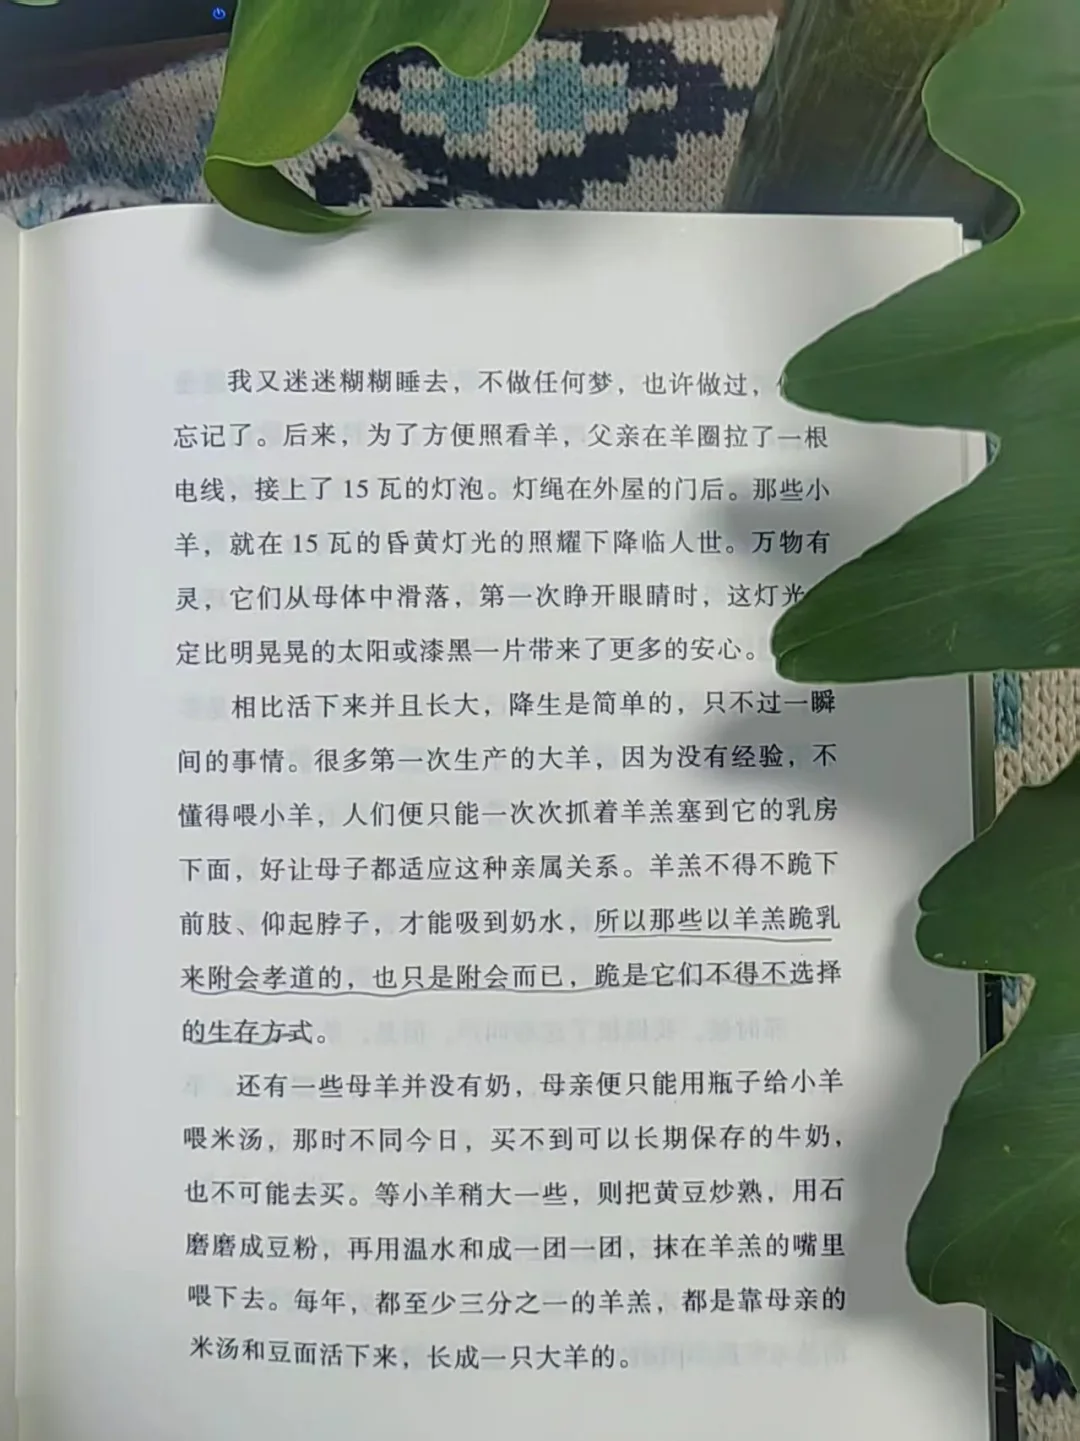 我又迷迷糊糊睡去，不做任何梦，也许做过，
忘记了。后来，为了方便照看羊，父亲在羊圈拉了一根
电线，接上了 15 瓦的灯泡。灯绳在外屋的门后。那些小
羊，就在 15 瓦的昏黄灯光的照耀下降临人世。万物有
灵，它们从母体中滑落，第一次睁开眼睛时，这灯光
定比明晃晃的太阳或漆黑一片带来了更多的安心。
相比活下来并且长大，降生是简单的，只不过一瞬
间的事情。很多第一次生产的大羊，因为没有经验，不
懂得喂小羊，人们便只能一次次抓着羊羔塞到它的乳房
下面，好让母子都适应这种亲属关系。羊羔不得不跪下
前肢、仰起脖子，才能吸到奶水，所以那些以羊羔跪乳
来附会孝道的，也只是附会而已，跪是它们不得不选择
的生存方式。
还有一些母羊并没有奶，母亲便只能用瓶子给小羊
喂米汤，那时不同今日，买不到可以长期保存的牛奶，
也不可能去买。等小羊稍大一些，则把黄豆炒熟，用石
磨磨成豆粉，再用温水和成一团一团，抹在羊羔的嘴里
喂下去。每年，都至少三分之一的羊羔，都是靠母亲的
米汤和豆面活下来，长成一只大羊的。